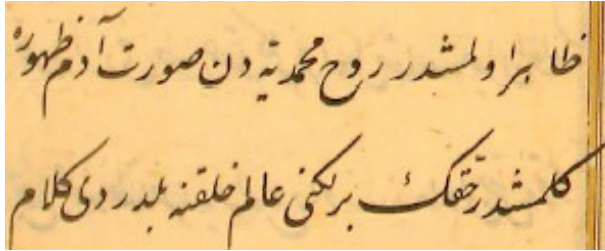 ظاهر اولمشدر روح محمدیه دن صورت آدم ظهوره
کلمشدر حقك برلکنی عالم خلقنه بلدردی کلام